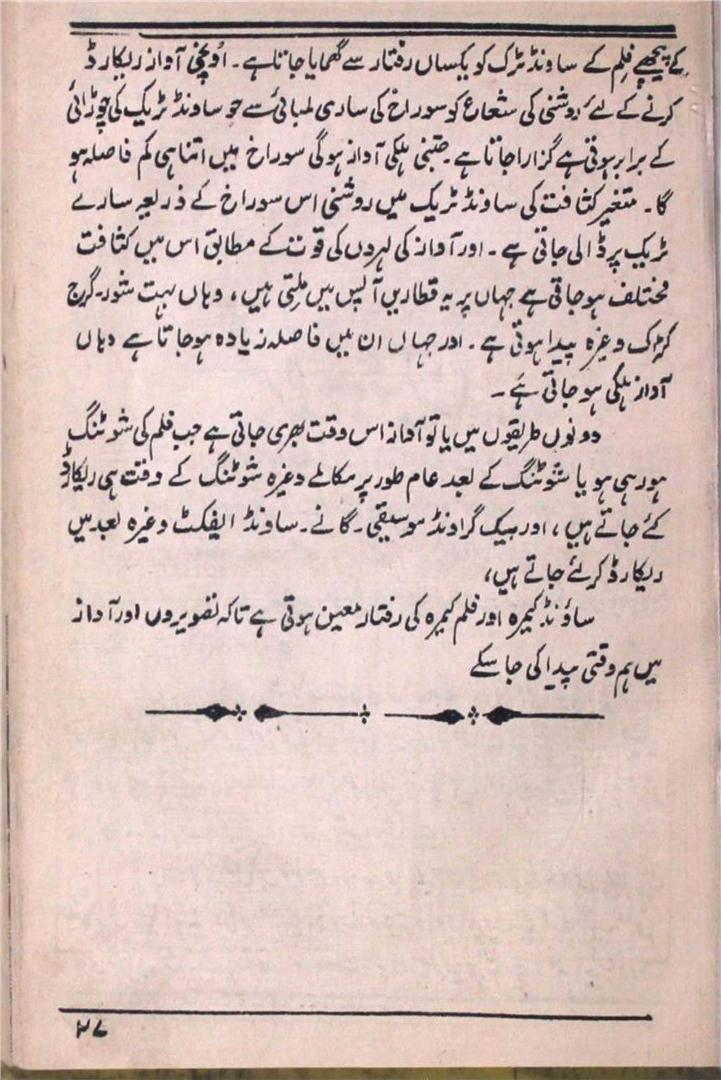 کے پیچھے فلم کے ساونڈ ٹرک کو یکساں رفتار سے گھمایا جاتا ہے۔ اُونچی آواز ریکارڈ
کرنے کے لئے روشنی کی شعاع کو سوراخ کی ساری لمبائی سے جو ساونڈ ٹریک کی چوڑائی
کے برابر ہوتی ہے گزارا جاتا ہے۔ جتنی ہلکی آواز ہوگی سوراخ میں اتنا ہی کم فاصلہ ہو
گا۔ متغیر کثافت کی ساونڈ ٹریک میں روشنی اس سوراخ کے ذریعہ سارے
ٹریک پر ڈالی جاتی ہے۔ اور آواز کی لہروں کی قوت کے مطابق اس میں کثافت
مختلف ہو جاتی ہے جہاں پر یہ قطاریں آپس میں ملتی ہیں، وہاں بہت شور۔ گرج
کڑک وغیرہ پیدا ہوتی ہے۔ اور جہاں ان میں فاصلہ زیادہ ہو جاتا ہے وہاں
آواز ہلکی ہو جاتی ہے۔
دونوں طریقوں میں یا تو آواز اس وقت بھری جاتی ہے جب فلم کی شوٹنگ
ہو رہی ہو یا شوٹنگ کے بعد عام طور پر مکالمے وغیرہ شوٹنگ کے وقت ہی ریکارڈ
کئے جاتے ہیں، اور بیک گراونڈ موسیقی۔ گانے۔ ساونڈ ایفکٹ وغیرہ بعد میں
ریکارڈ کر لئے جاتے ہیں،
ساؤنڈ کیمرہ اور فلم کیمرہ کی رفتار معین ہوتی ہے تاکہ تصویروں اور آواز
میں ہم وقتی پیدا کی جا سکے
۲۷